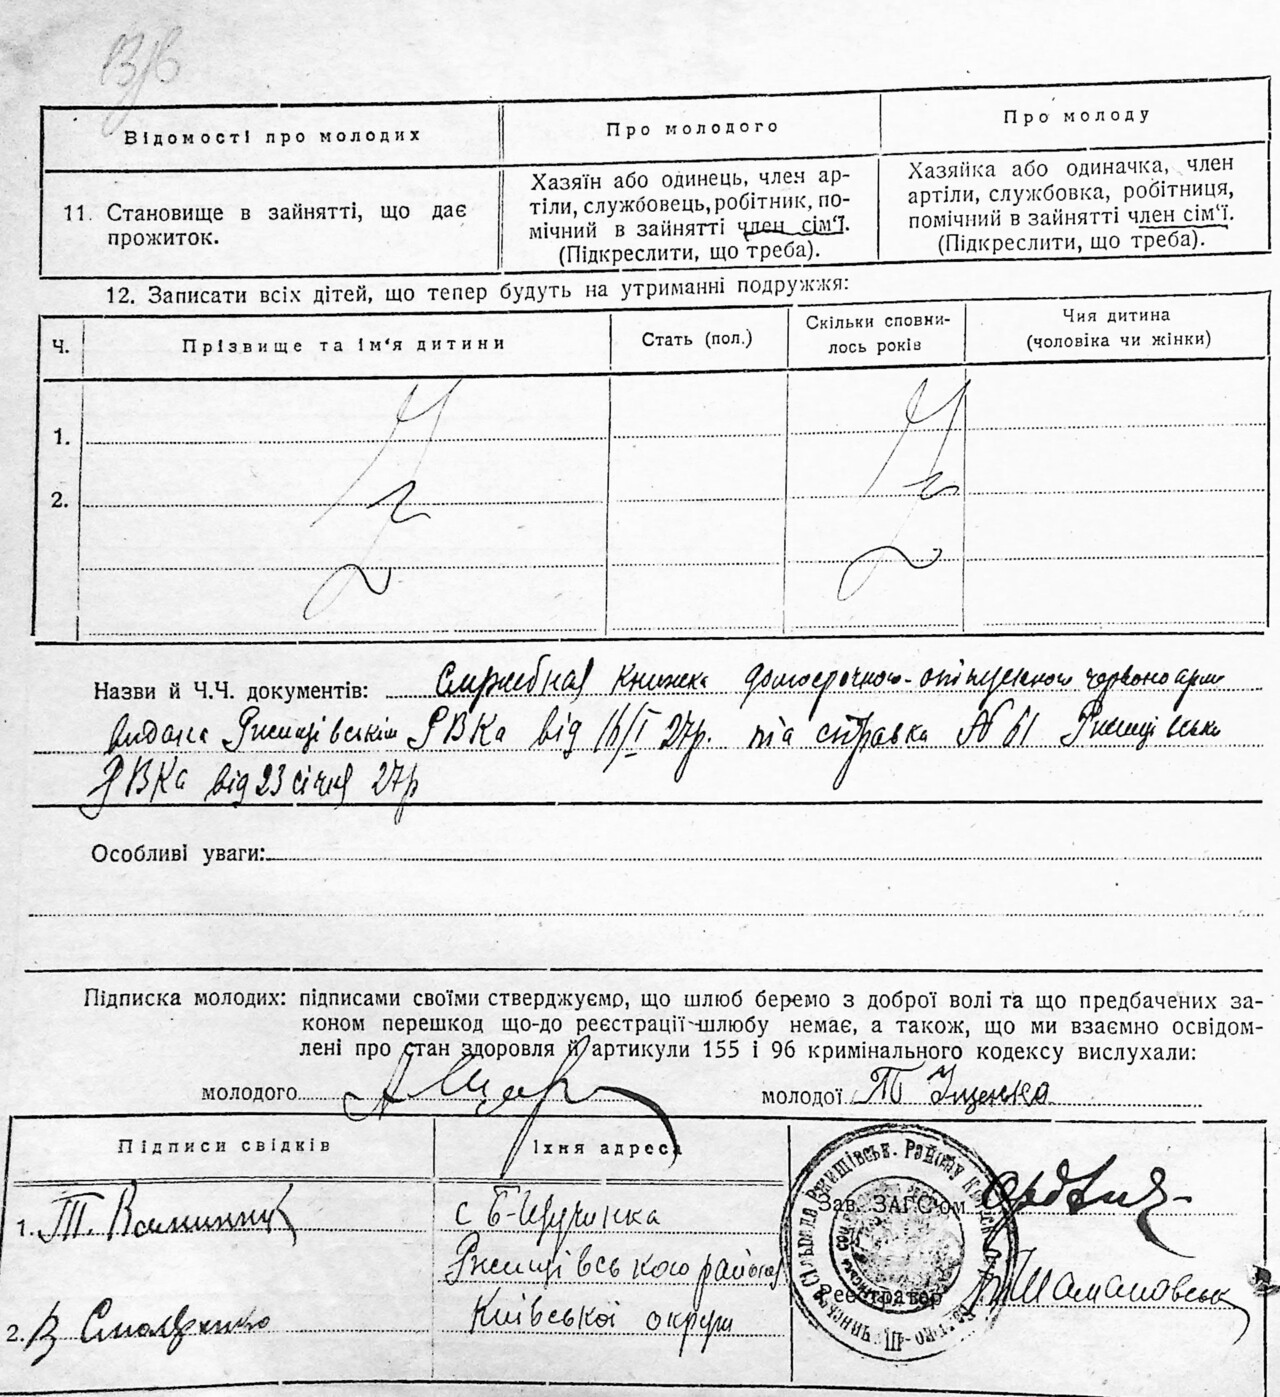 Відомості про молодих
Про молодого
Про молоду
11. Становище в зайнятті, що дає
прожиток.
Хазяїн або одинець, член ар-
тіли, службовець, робітник, по-
мічний в зайнятті член сім'ї.
(Підкреслити, що треба).
Хазяйка або одиначка, член
артіли, службовка, робітниця,
помічний в зайнятті член сім'ї.
(Підкреслити, що треба).
12. Записати всіх дітей, що тепер будуть на утриманні подружжя:
Ч.
Прізвище та ім'я дитини
Стать (пол.)
Скільки сповни-
лось років
Чия дитина
(чоловіка чи жінки)
1.
2.
Назви й Ч.Ч. документів: Службная книжка
видана Ржищівськім РВКа від 16/I 27р. та справка № 61 Ржищівськ
РВКа від 23 січня 27р
Особливі уваги:
Підписка молодих: підписами своїми стверджуємо, що шлюб беремо з доброї волі та що предбачених за-
коном перешкод що-до реєстрації шлюбу немає, а також, що ми взаємно освідом-
лені про стан здоровля й артикули 155 і 96 кримінального кодексу вислухали:
молодого
молодої Т Іщенко
Підписи свідків
Їхня адреса
1. Т.
с Б-Щучинка
Ржищівського района
Київської округи
2. В Смоляренко
Зав. ЗАГС'ом
Реєстратор Шамановськ